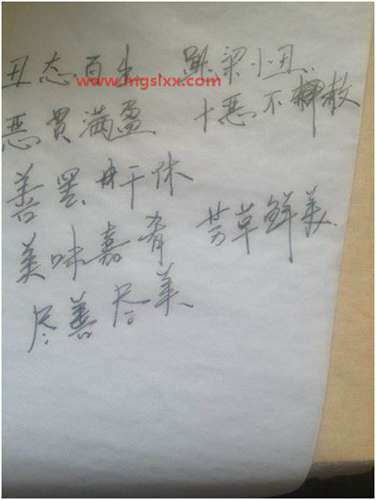 丑态百出 跳梁小丑
www.mgslxx.com
恶贯满盈 十恶不赦
善罢干休
美味嘉肴 芳草鲜美
尽善尽美